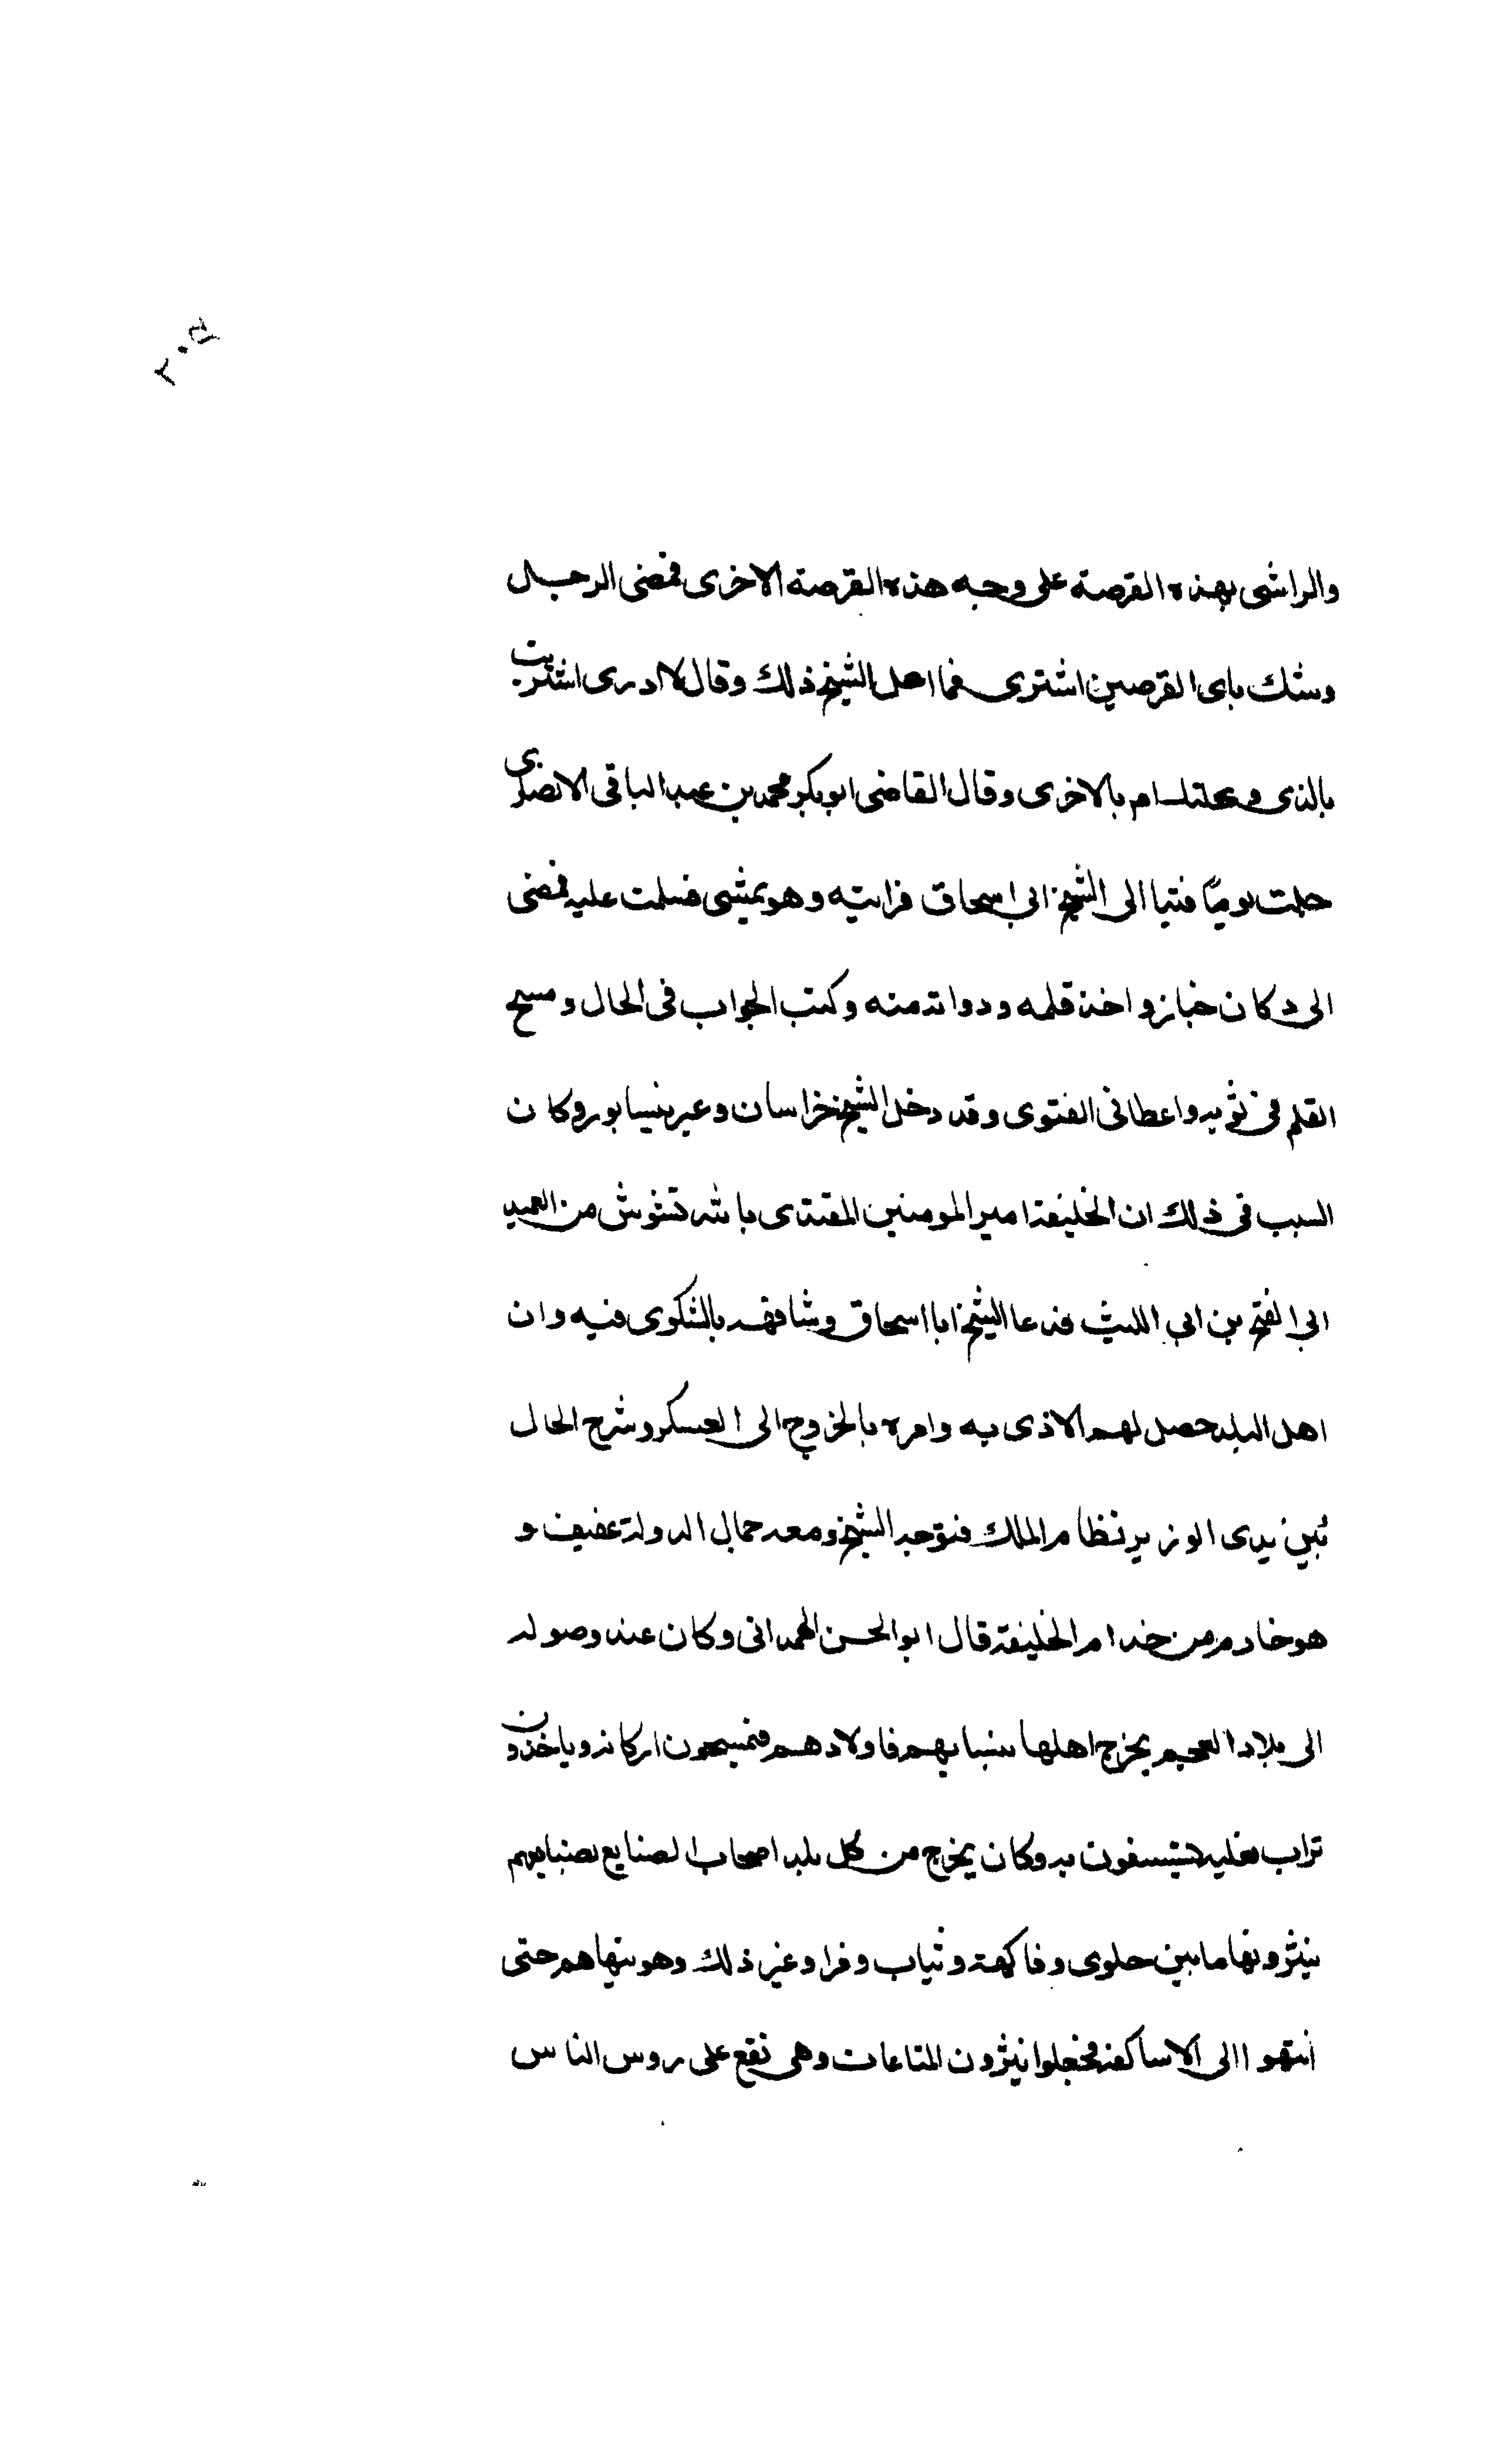 ٢٠٥
والراشى بهذه القرصة على وجه هذه القرصة الاخرى فمضى الرجال
وشك باى القرصين اشترى فما اكل الشيخ ذلك وقال لا ادرى اشتريت
بالذى وكلتك ام بالاخرى وقال القاضى ابوبكر محمد بن عبد الباقى الانصارى
حملت يوما فتيا الى الشيخ ابى اسحاق فرايته وهو يمشى فسلمت عليه فمضى
الى دكان خباز واخذ قلمه ودواته منه وكتب الجواب فى الحال ومسح
القلم فى ثوبه واعطانى الفتوى وقد دخل الشيخ خراسان وعبر نيسابور وكان
السبب فى ذلك ان الخليفة امير المومنين المقتدى بالله تشوش من العميد
ابى الفتح بن ابى الليث فدعا الشيخ ابا اسحاق وشافهه بالشكوى فيه وان
اهل البلد حصل لهم الاذى به وامره بالخروج الى العسكر وشرح الحال
بين يدى الوزير نظام الملك فتوجه الشيخ ومعه جمال الدولة عفيف و
هو خادم من خدام الخليفة قال ابو الحسن الهمدانى وكان عند وصوله
الى بلاد العجم يخرج اهلها بنسايهم فاولادهم فيمسحون اركانه وياخذون
تراب نعليه يستسفون به وكان يخرج من كل بلد اصحاب الصنايع بصنايعهم
ينثرونها مابين حلوى وفاكهة وثياب وفرا وغير ذلك وهو ينهاهم حتى
انتهوا الى الاساكفة فجعلوا ينثرون المتاعات وهى تقع على روس الناس